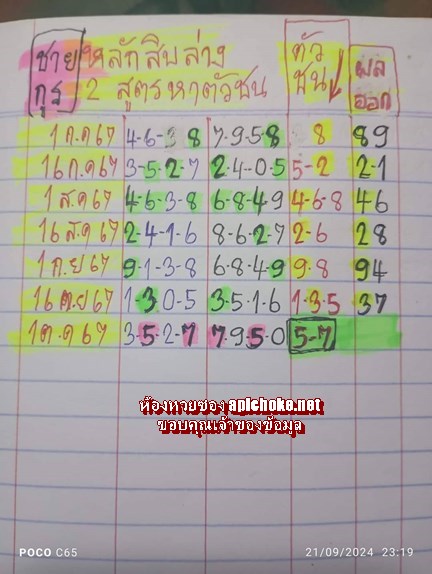 ชายกุร หลักสิบล่าง ตัวชน ผลออก
2 สูตรหาตัวชน
1 ก.ค 67 4-6-3-8 7-9-5-8 8 89
16 ก.ค 67 3-5-2-7 2-4-0-5 5-2 2-1
1 ส.ค 67 4-6-3-8 6-8-4-9 4-6-8 46
16 ส.ค 67 2-4-1-6 8-6-2-7 2-6 28
1 ก.ย 67 9-1-3-8 6-8-4-9 9-8 94
16 ก.ย 67 1-3-0-5 3-5-1-6 1-3-5 37
1 ต.ค 67 3-5-2-7 7-9-5-0 5-7
ห้องหวยซอง apichoke.net
ขอบคุณเจ้าของข้อมูล
POCO C65 21/09/2024 23:19